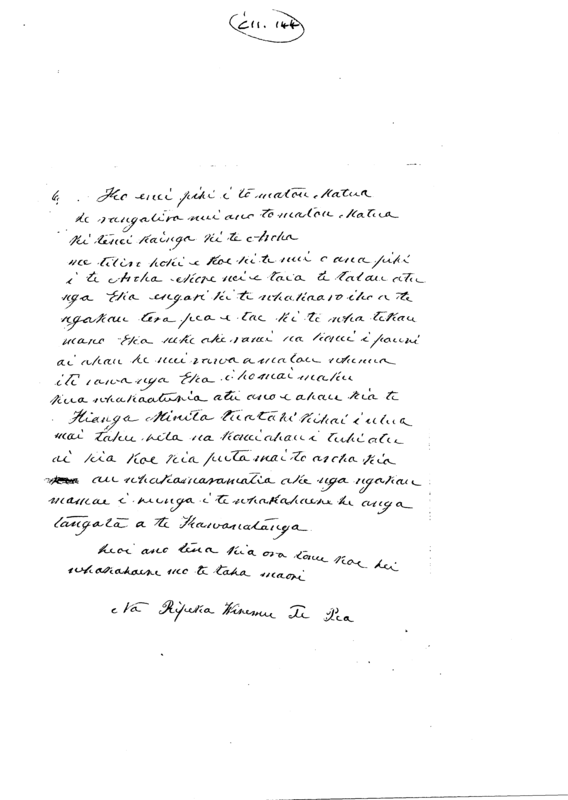 C11. 144
6. Ko enei piki i to matou Matua
he rangatira nui ano to matou Matua
ki tenei kainga ki te Aroha
me titiro hoki e koe ki te nui o ana piki
i te Aroha ekore nei e taea te tatau atu
nga Eka engari ki te whakaaro iho a te
ngakau tera pea e tae ki te wha tekau
mano Eka neke ake ranei na konei i pouri
ai ahau he nui rawa a matou whenua
iti rawa nga Eka i homai maku
kua whakaaturia atu ano e ahau kia te
Hianga Minita Tuatahi kihai i utua
mai taku reta na konei ahau i tuhi atu
ai kia koe kia puta mai to aroha kia
au whakamaramatia ake nga ngakau
mamae i runga i te whakahaere he anga
tangata a te Kawanatanga
heoi ano tena kia ora tonu koe hei
whakahaere mo te taha maori
Na Ripeka Wiremu Te Pea